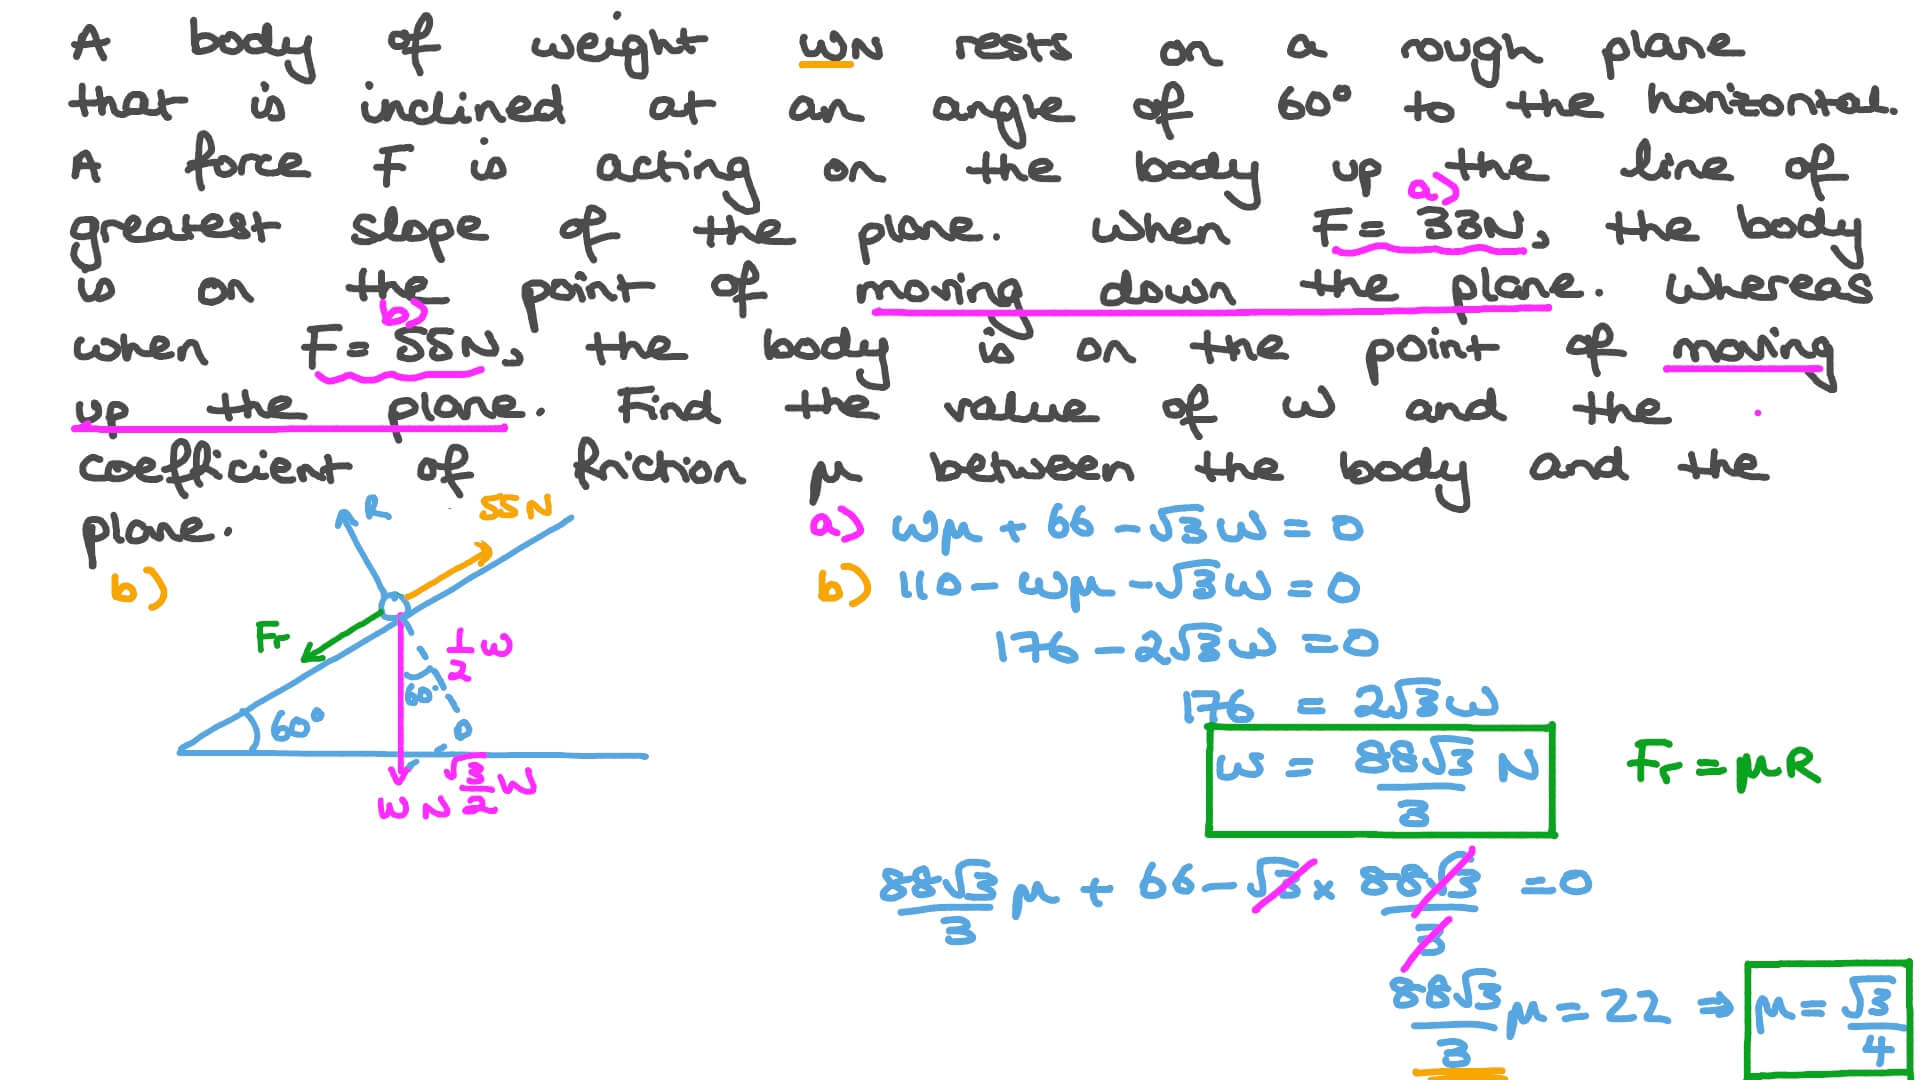 A body of weight WN rests on a rough plane
that is inclined at an angle of 60° to the horizontal.
A force F is acting on the body up the line of
a)
greatest slope of the plane. When F= 33N, the body
is on the point of moving down the plane. Whereas
b)
when F= 55N, the body is on the point of moving
up the plane. Find the value of W and the
coefficient of friction μ between the body and the
plane.
b)
R
55N
Fr
1/2 W
60°
60°
WN
√3/2 W
a) Wμ + 66 - √3W = 0
b) 110 - Wμ - √3W = 0
176 - 2√3W = 0
176 = 2√3W
W = 88√3/3 N
Fr = μR
88√3/3 μ + 66 - √3 × 88√3/3 = 0
88√3/3 μ = 22 ⇒ μ = √3/4